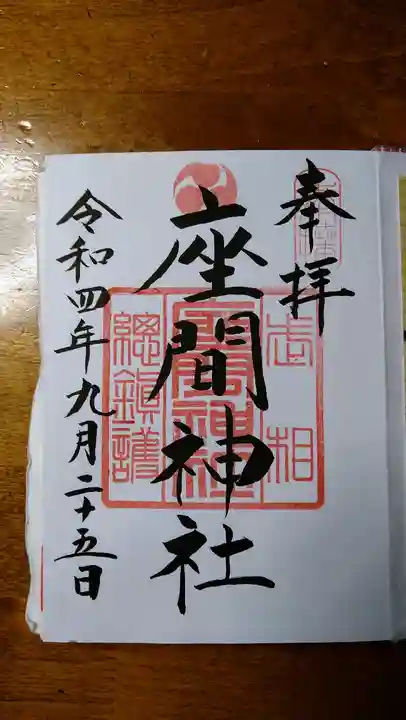 奉拝
座間神社
令和四年九月二十五日
相
座間神社
總鎮護